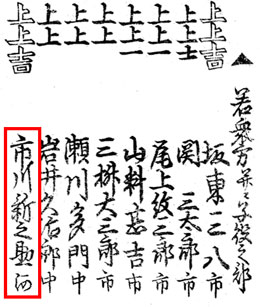 ▲若衆方并ニ子役之部
上上吉 坂東三八 市
上上士 関三太郎 市
上上一 尾上紋三郎 市
上上 山科甚吉 市
上上 三桝大三郎 市
上上 瀬川多門 中
上上 岩井久 郎 中
上上吉 市川新之助 河